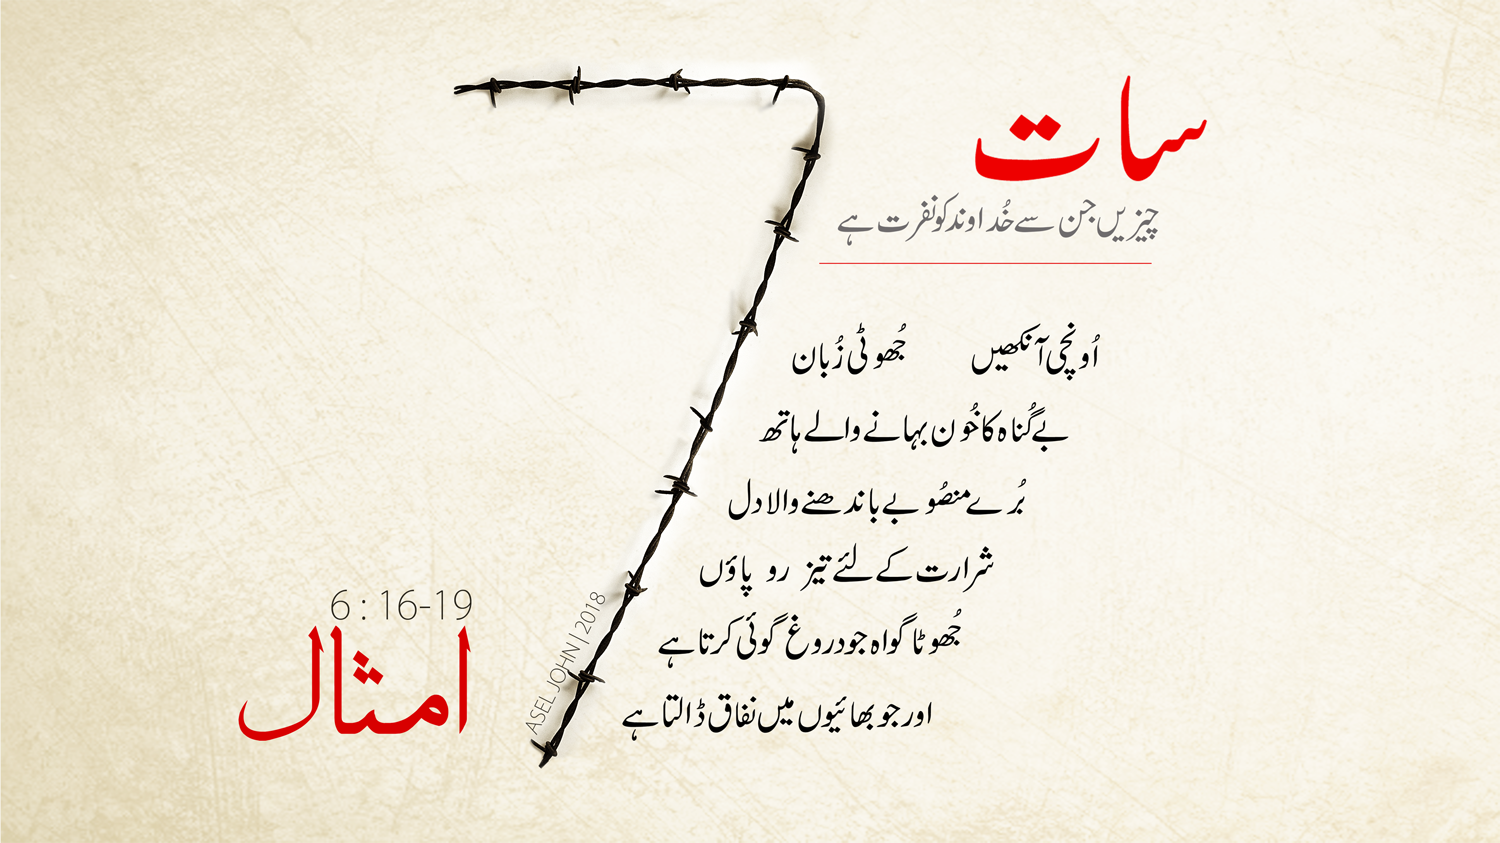 سات
چیزیں جن سے خُداوند کو نفرت ہے
اُونچی آنکھیں جُھوٹی زُبان
بے گُناہ کا خُون بہانے والے ہاتھ
بُرے منصُوبے باندھنے والا دل
شرارت کے لئے تیز رو پاؤں
جُھوٹا گواہ جو دروغ گوئی کرتا ہے
اور جو بھائیوں میں نفاق ڈالتا ہے
6 : 16-19
امثال
ASEL JOHN | 2018